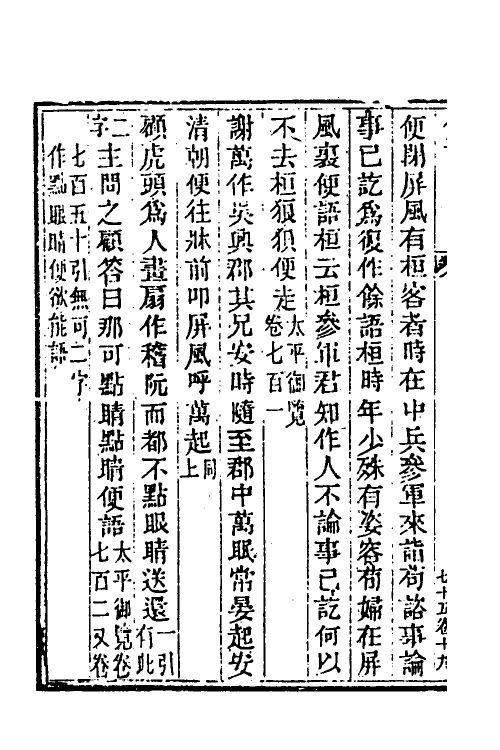 便閉屏風有桓客者時在中兵參軍來詣荀諮事論
事已訖爲復作餘語桓時年少殊有姿容荀婦在屏
風裏便語桓云桓參軍君知作人不論事已訖何以
不去桓狼狽便走太平御覽卷七百一
謝萬作吳興郡其兄安時隨至郡中萬眠常晏起安
清朝便往牀前叩屏風呼萬起同上
顧虎頭爲人畫扇作稽阮而都不點眼睛送還一引有此
二字主問之顧答曰那可點睛點睛便語太平御覽卷七百二又卷
七百五十引無可二字
作點眼睛便欲能語